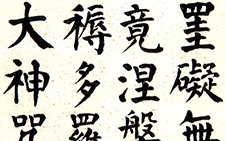 罣礙無
竟涅盤
褥多羅
大神咒